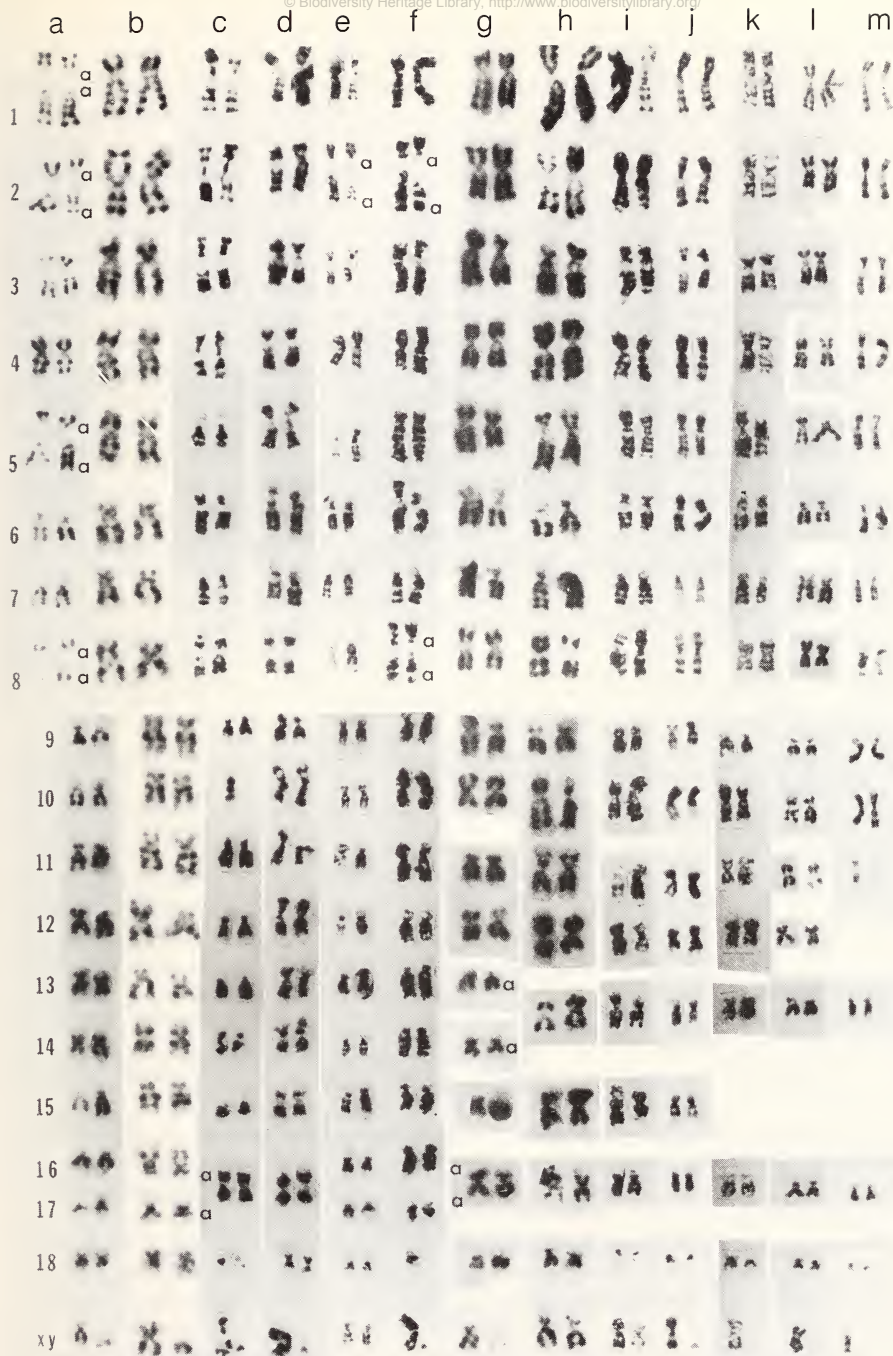 © Biodiversity Heritage Library, http://www.biodiversitylibrary.org/
a b c d e f g h i j k l m
1 a
a
2 a a a
a a a
3
4
5 a
a
6
7
8 a a
a a
9
10
11
12
13 a
14 a
15
16 a a
17 a a
18
xy